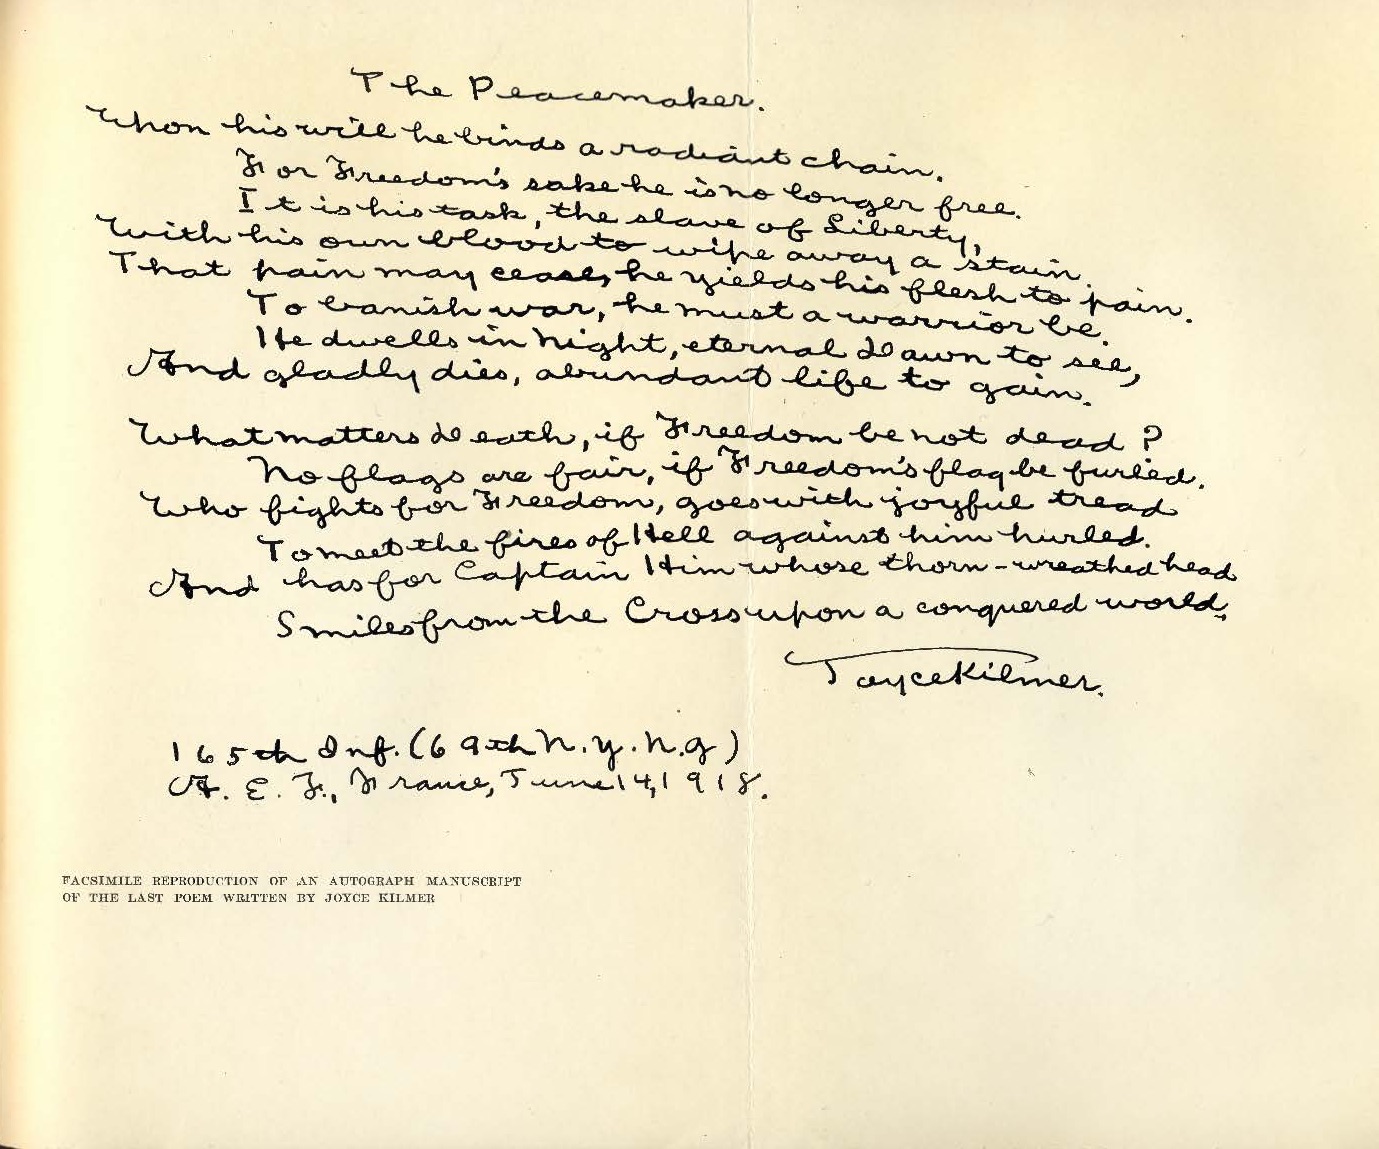 The Peacemaker.
Upon his will he binds a radiant chain.
For Freedom's sake he is no longer free.
It is his task, the slave of Liberty,
With his own blood to wipe away a stain.
That pain may cease, he yields his flesh to pain.
To banish war, he must a warrior be.
He dwells in Night, eternal Dawn to see,
And gladly dies, abundant life to gain.
What matters Death, if Freedom be not dead?
No flags are fair, if Freedom's flag be furled.
Who fights for Freedom, goes with joyful tread
To meet the fires of Hell against him hurled.
And has for Captain Him whose thorn-wreathed head
Smiles from the Cross upon a conquered world.
Joyce Kilmer.
165th Inf. (69th N.Y.N.G)
A. E. F., France, June 14, 1918.
FACSIMILE REPRODUCTION OF AN AUTOGRAPH MANUSCRIPT
OF THE LAST POEM WRITTEN BY JOYCE KILMER